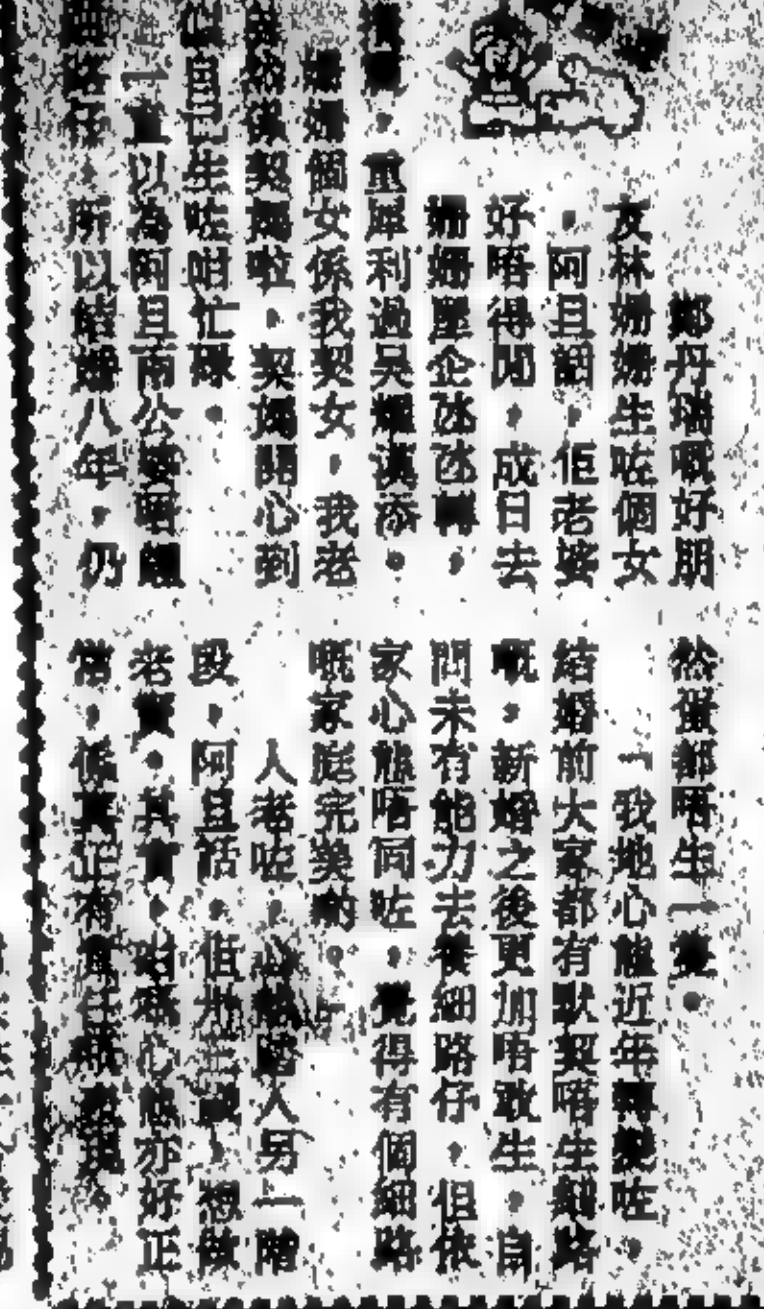 鄭丹瑞嘅好朋
友林姍姍生咗個女
，阿旦話，佢老婆
好唔得閒，成日去
姍姍屋企氹氹轉，
重犀利過吳耀漢添。
姍姍個女係我契女，我老
契媽啦，契媽開心到
似自己生咗咁忙碌。
一直以為阿旦兩公婆唔
，所以結婚八年，仍
然蛋都唔生一隻。
「我地心態近年轉變咗，
結婚前大家都有默契唔生細路
嘅，新婚之後更加唔敢生，自
問未有能力去養細路仔，但依
家心態唔同咗，覺得有個細路
嘅家庭完美啲。」
人老咗，心態踏入另一階
段，阿旦話，佢地 想做
老竇。其實，咁嘅心態亦好正
常，係真正有責任